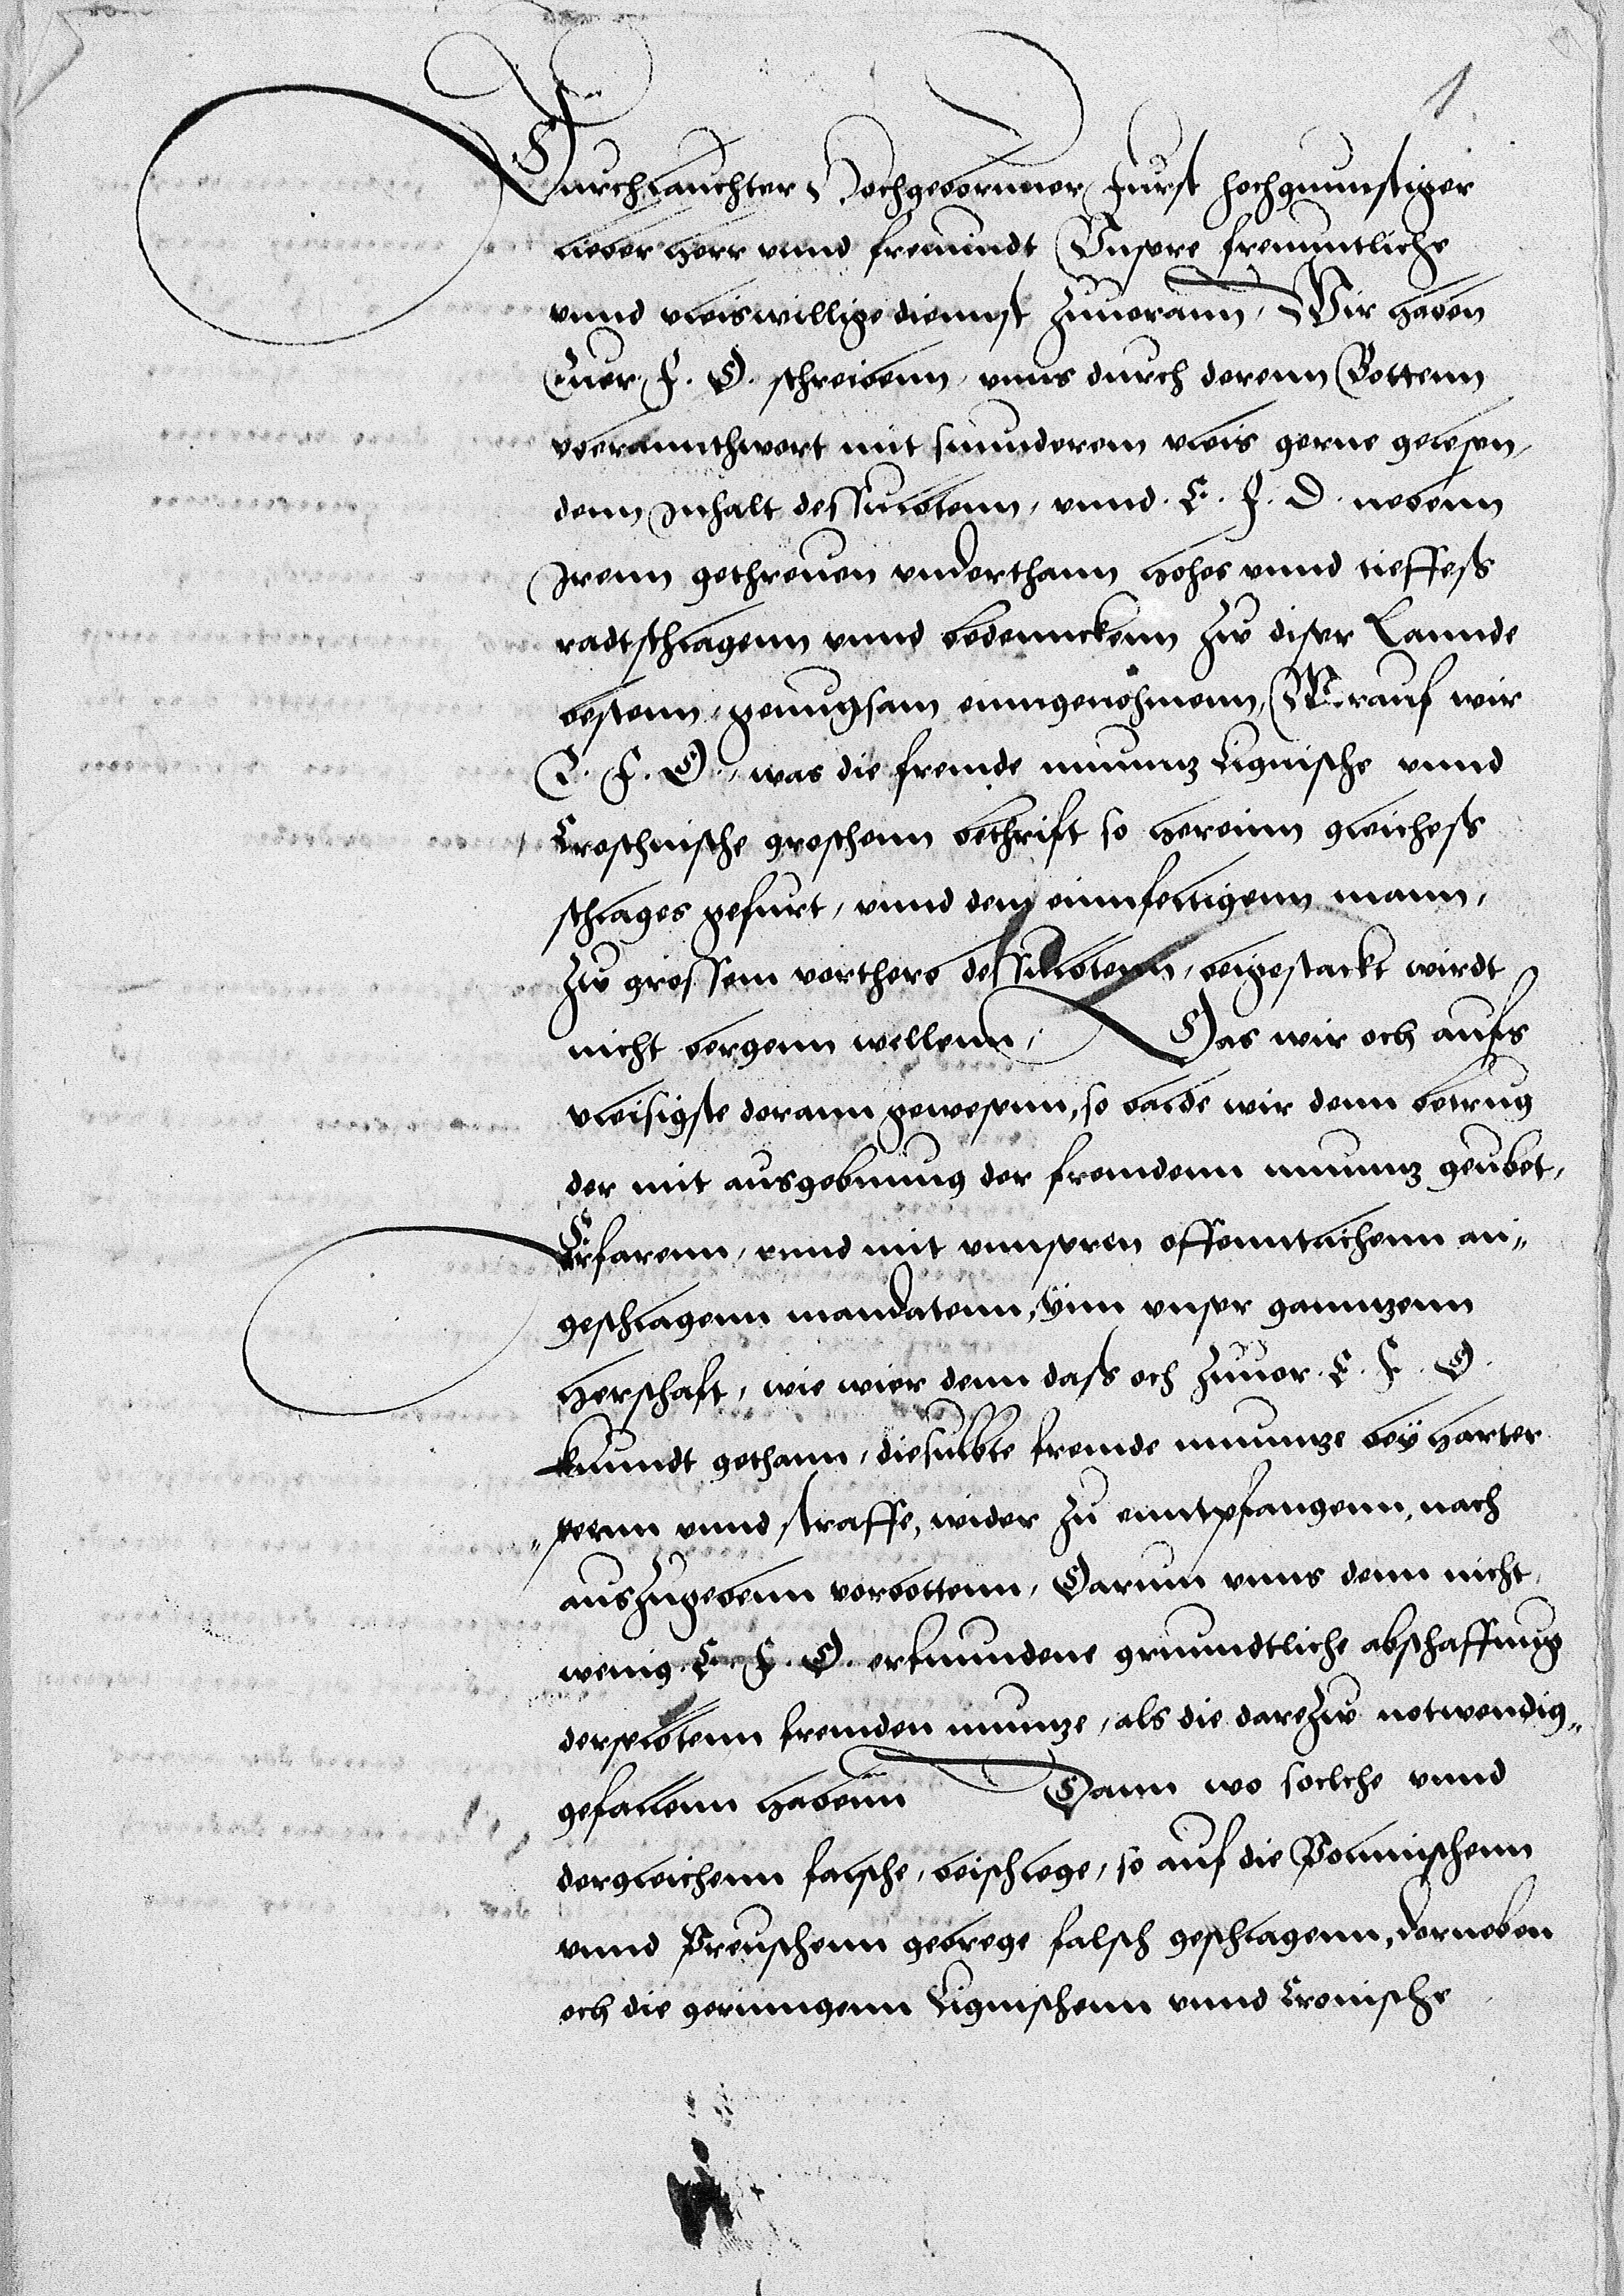 1
Durchlauchter Hochgeborner Furst hochgunnstiger
lieber herr unnd freundt Unsere freuntliche
unnd vleis willige diennst zuuorann, Wir haben
Euer F. D. schreibenn, unns durch derenn Bottenn
uberannthwort mit sunnderem vleis gerne gelesen,
denn Inhalt desselbtenn, unnd E. F. D. nebenn
Irenn gethreuen underthann hohes unnd tieffess
radtschlagenn unnd bedennckenn zw diser Lannde
bestenn, genugsam einngenohmenn, Worauf wir
E. F. D., was die fremde munnz Lignische unnd
Croschnische groschenn bethrift so hereinn gleichess
schlages gefurt, unnd dem einnfeltigenn mann,
zw grossem vortherb desselbtenn, beigestackt wirdt
nicht bergenn wellenn, Das wir och aufs
vleisigste derann gewesenn, so balde wir denn betrug
der mit ausgebunng der fremdenn munnz geubet,
Erfarenn, unnd mit unnseren offenntlichenn an„
geschlagenn mandatenn, Inn unser gannzenn
Herschaft, wie wier denn dass och zuuor E. F. D.
kunndt gethann, dieselbte fremde munnze beÿ harter
„penn unnd straffe, wider zu enntpfangenn, nach
auszugebenn verbottenn, Darum unns denn nicht
wenig E. F. D. erfunndene grunndtliche abschaffung
derselbtenn fremden munnze, als die darzw notwendig„
gefallenn habenn Dann wo soclche unnd
dergleichenn falsche, beischlege, so auf die Polnnischenn
unnd Preuschenn geprege falsch geschlagenn, derneben
och die geringenn Lignischenn unnd Cronische